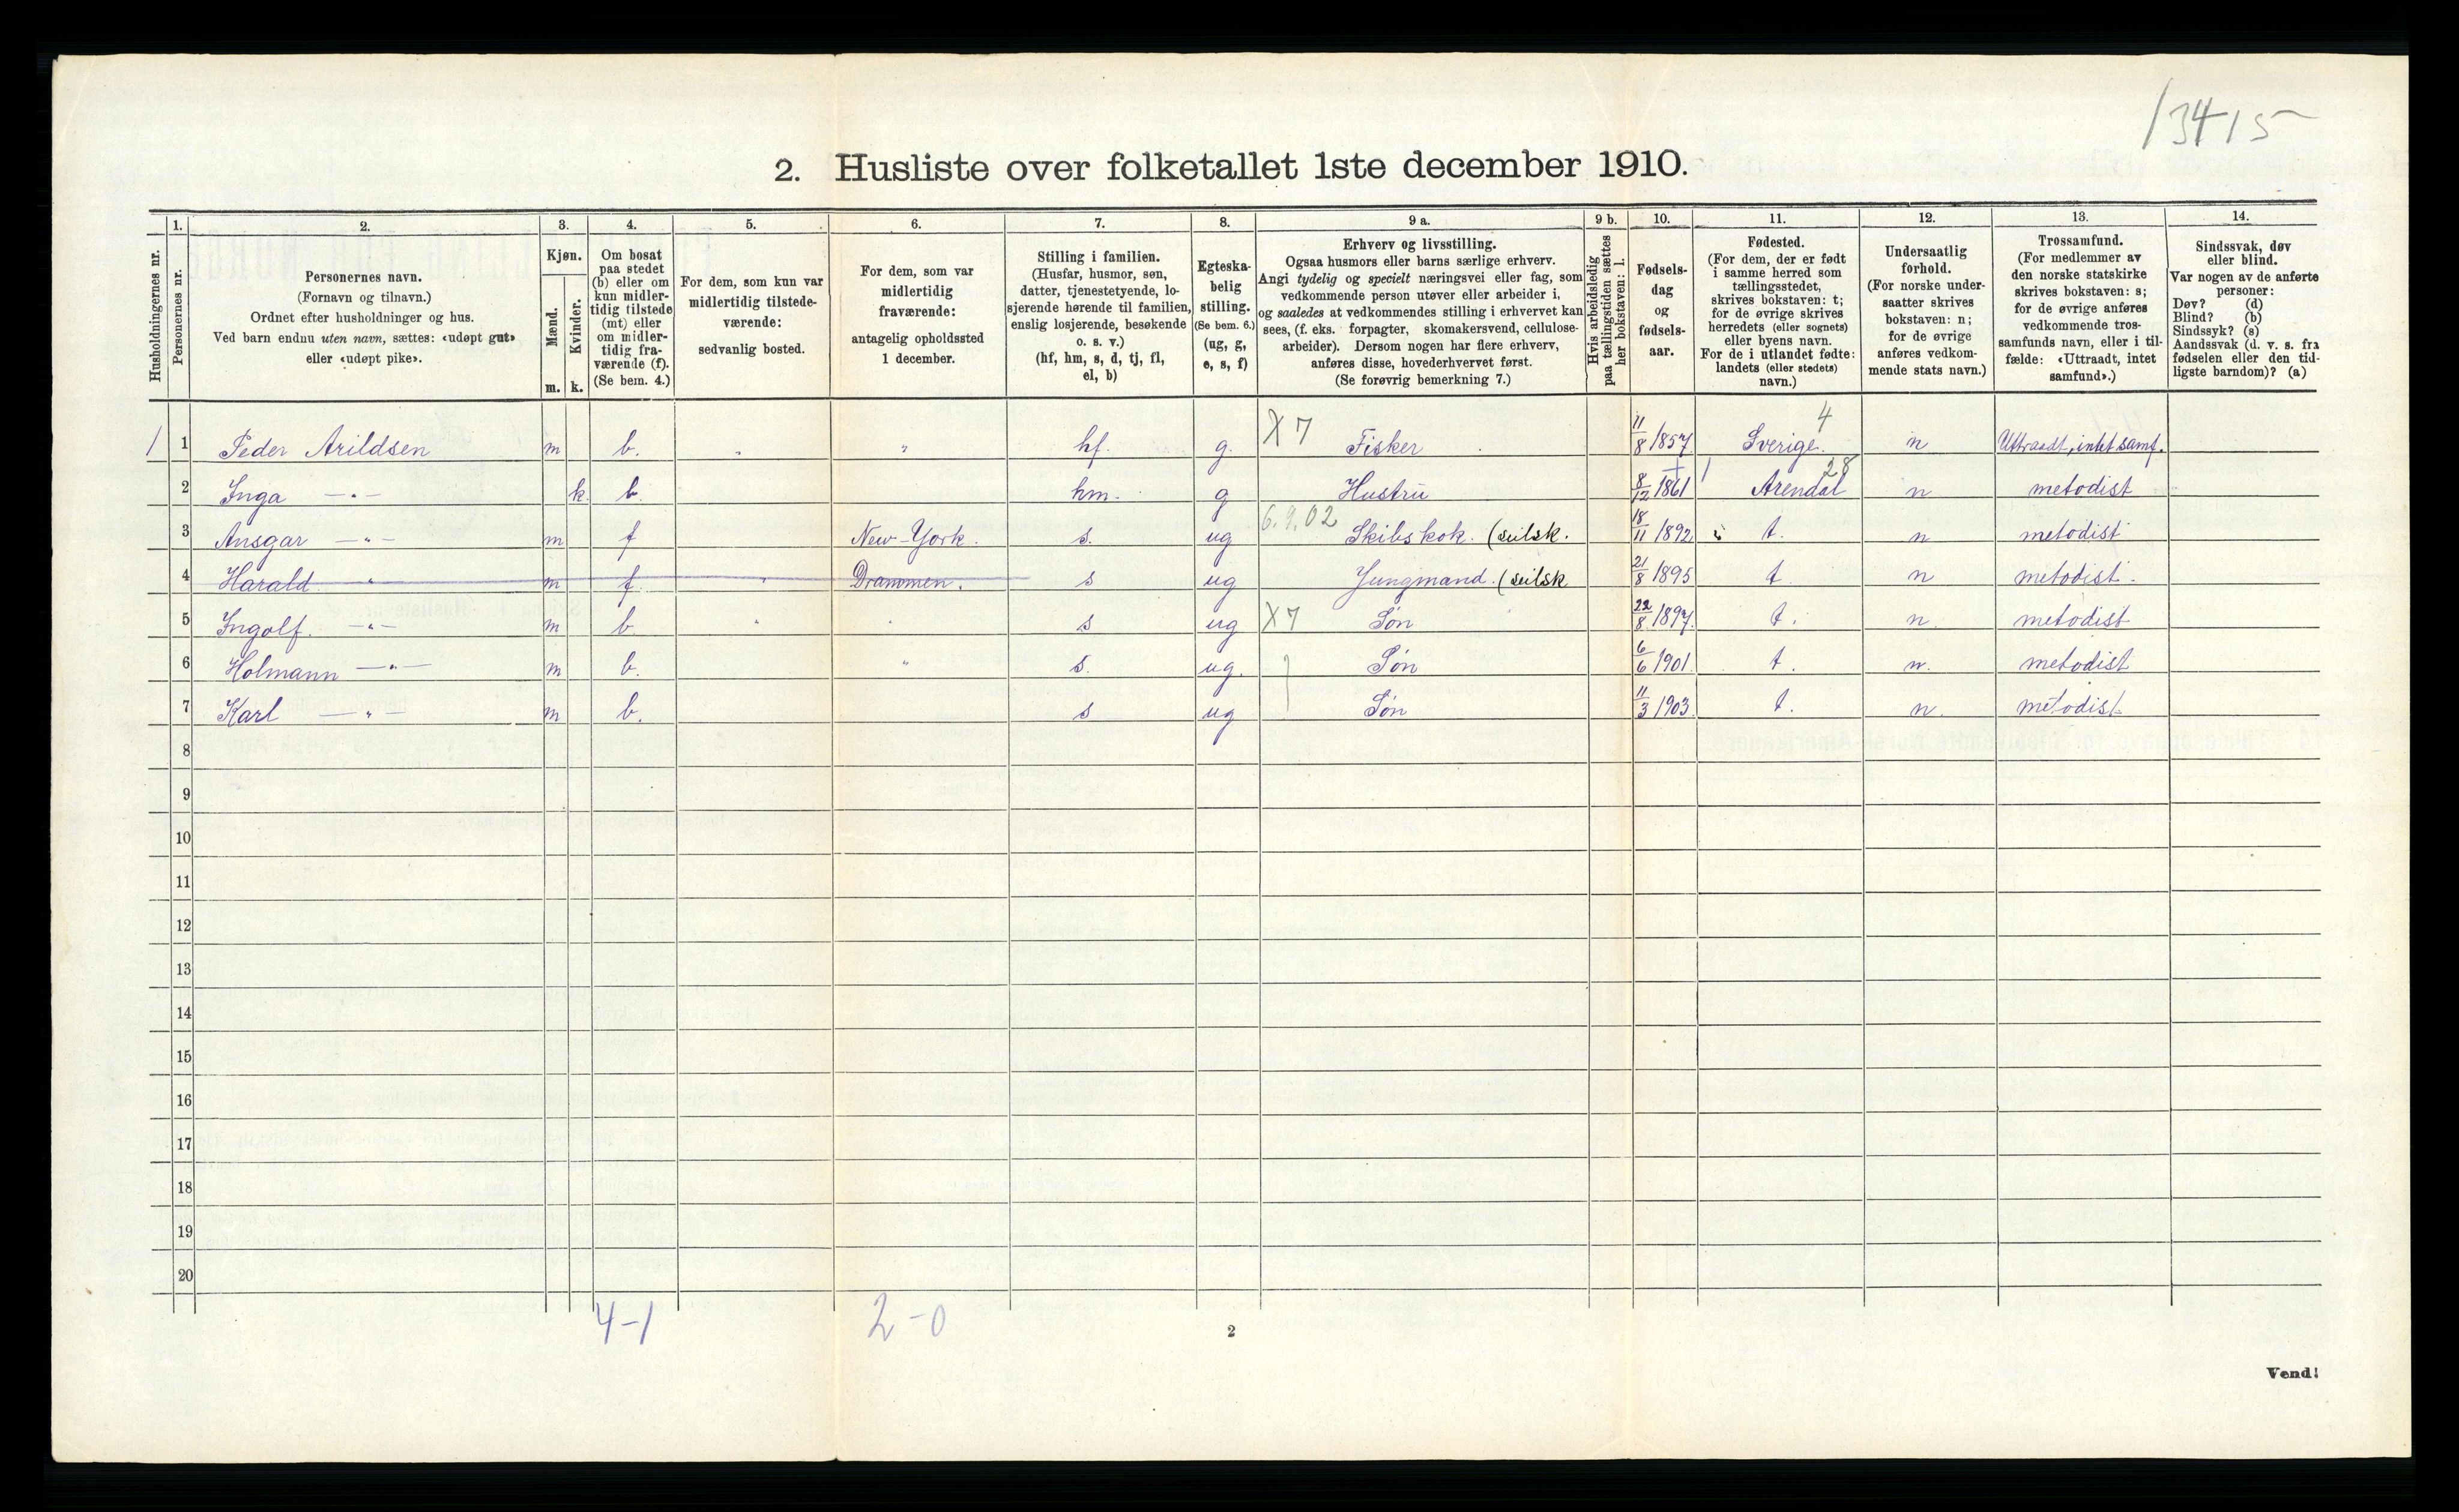 13415
2. Husliste over folketallet 1ste december 1910.
1. 2. 3. 4. 5. 6. 7. 8. 9 a. 9 b. 10. 11. 12. 13. 14.
Husholdningernes nr.
Personernes nr.
Personernes navn.
(Fornavn og tilnavn.)
Ordnet efter husholdninger og hus.
Ved barn endnu uten navn, sættes: «udøpt gut»
eller «udøpt pike».
Kjøn.
Mænd.
Kvinder.
m. k.
Om bosat
paa stedet
(b) eller om
kun midler-
tidig tilstede
(mt) eller
om midler-
tidig fra-
værende (f).
(Se bem. 4.)
For dem, som kun var
midlertidig tilstede-
værende:
sedvanlig bosted.
For dem, som var
midlertidig
fraværende:
antagelig opholdssted
1 december.
Stilling i familien.
(Husfar, husmor, søn,
datter, tjenestetyende, lo-
sjerende hørende til familien,
enslig losjerende, besøkende
o. s. v.)
(hf, hm, s, d, tj, fl,
el, b)
Egteska-
belig
stilling.
(Se bem. 6.)
(ug, g,
e, s, f)
Erhverv og livsstilling.
Ogsaa husmors eller barns særlige erhverv.
Angi tydelig og specielt næringsvei eller fag, som
vedkommende person utøver eller arbeider i,
og saaledes at vedkommendes stilling i erhvervet kan
sees, (f. eks. forpagter, skomakersvend, cellulose-
arbeider). Dersom nogen har flere erhverv,
anføres disse, hovederhvervet først.
(Se forøvrig bemerkning 7.)
Hvis arbeidsledig
paa tællingstiden sættes
her bokstaven: l.
Fødsels-
dag
og
fødsels-
aar.
Fødested.
(For dem, der er født
i samme herred som
tællingsstedet,
skrives bokstaven: t;
for de øvrige skrives
herredets (eller sognets)
eller byens navn.
For de i utlandet fødte:
landets (eller stedets)
navn.)
Undersaatlig
forhold.
(For norske under-
saatter skrives
bokstaven: n;
for de øvrige
anføres vedkom-
mende stats navn.)
Trossamfund.
(For medlemmer av
den norske statskirke
skrives bokstaven: s;
for de øvrige anføres
vedkommende tros-
samfunds navn, eller i til-
fælde: «Uttraadt, intet
samfund».)
Sindssvak, døv
eller blind.
Var nogen av de anførte
personer:
Døv? (d)
Blind? (b)
Sindssyk? (s)
Aandssvak (d. v. s. fra
fødselen eller den tid-
ligste barndom)? (a)
1 1 Peder Arildsen m b. " " hf. g. X 7 Fisker 11/8 1857 Sverige. 4 n Uttraadt, intet samf.
2 Inga —"— k. b. hm. g Hustru 8/12 1861 Arendal 28 n metodist
3 Ansgar —"— m f New-York. s. ug 6.9.02 Skibskok. (seilsk. 18/11 1892 t. n metodist
4 Harald " m f " Drammen. s ug Jungmand. (seilsk 21/8 1895 t. n metodist.
5 Ingolf. —"— m b " " s ug X 7 Søn 22/8 1897. t. n. metodist
6 Holmann —"— m b. " s. ug. Søn 6/6 1901. t. n. metodist
7 Karl —"— m b. s ug Søn 11/3 1903. t. n. metodist.
8
9
10
11
12
13
14
15
16
17
18
19
20
4-1 2-0
2
Vend!